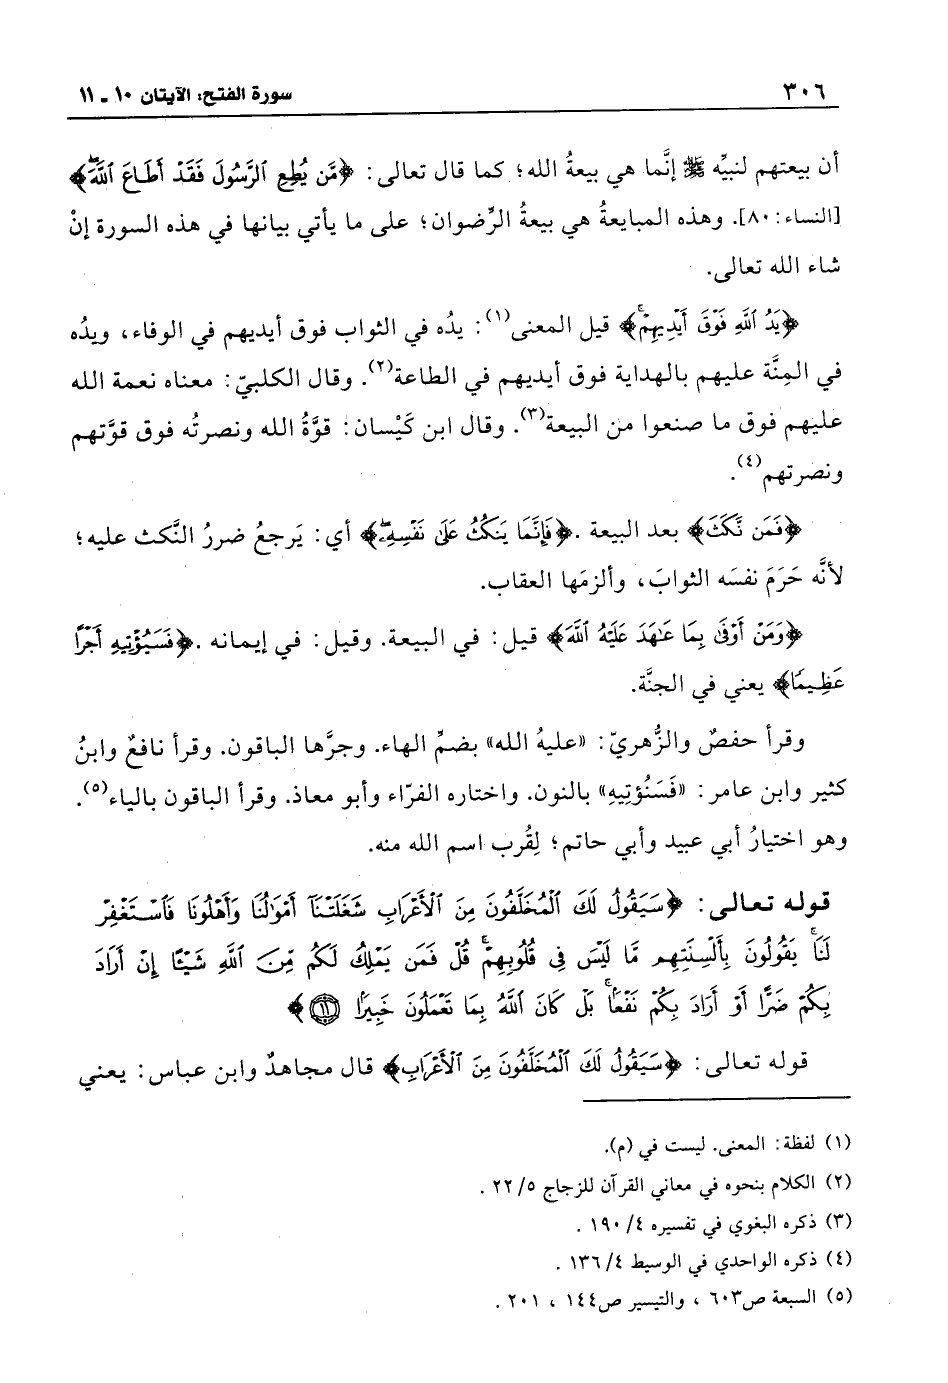 ٣٠٦
سورة الفتح: الآيتان ١٠ ـ ١١
أن بيعتهم لنبيِّه ﷺ إنَّما هي بيعةُ الله؛ كما قال تعالى: ﴿مَّن يُطِعِ ٱلرَّسُولَ فَقَدۡ أَطَاعَ ٱللَّهَۖ﴾
[النساء: ٨٠]. وهذه المبايعةُ هي بيعةُ الرِّضوان؛ على ما يأتي بيانها في هذه السورة إنْ
شاء الله تعالى.
﴿يَدُ ٱللَّهِ فَوۡقَ أَيۡدِيهِمۡۚ﴾ قيل المعنى(١): يدُه في الثواب فوق أيديهم في الوفاء، ويدُه
في المِنَّة عليهم بالهداية فوق أيديهم في الطاعة(٢). وقال الكلبيّ: معناه نعمة الله
عليهم فوق ما صنعوا من البيعة(٣). وقال ابن كَيْسان: قوَّةُ الله ونصرتُه فوق قوَّتهم
ونصرتهم(٤).
﴿فَمَن نَّكَثَ﴾ بعد البيعة. ﴿فَإِنَّمَا يَنكُثُ عَلَىٰ نَفۡسِهِۦۖ﴾ أي: يَرجعُ ضررُ النَّكث عليه؛
لأنَّه حَرَمَ نفسَه الثوابَ، وألزمَها العقاب.
﴿وَمَنۡ أَوۡفَىٰ بِمَا عَٰهَدَ عَلَيۡهُ ٱللَّهَ﴾ قيل: في البيعة. وقيل: في إيمانه. ﴿فَسَيُؤۡتِيهِ أَجۡرًا
عَظِيمٗا﴾ يعني في الجنَّة.
وقرأ حفصٌ والزُّهريّ: «عليهُ الله» بضمِّ الهاء. وجرَّها الباقون. وقرأ نافعٌ وابنُ
كثير وابن عامر: «فَسَنُؤتِيهِ» بالنون. واختاره الفرّاء وأبو معاذ. وقرأ الباقون بالياء(٥).
وهو اختيارُ أبي عبيد وأبي حاتم؛ لِقُرب اسم الله منه.
قوله تعالى: ﴿سَيَقُولُ لَكَ ٱلۡمُخَلَّفُونَ مِنَ ٱلۡأَعۡرَابِ شَغَلَتۡنَآ أَمۡوَٰلُنَا وَأَهۡلُونَا فَٱسۡتَغۡفِرۡ
لَنَاۚ يَقُولُونَ بِأَلۡسِنَتِهِم مَّا لَيۡسَ فِي قُلُوبِهِمۡۚ قُلۡ فَمَن يَمۡلِكُ لَكُم مِّنَ ٱللَّهِ شَيۡـًٔا إِنۡ أَرَادَ
بِكُمۡ ضَرًّا أَوۡ أَرَادَ بِكُمۡ نَفۡعَۢاۚ بَلۡ كَانَ ٱللَّهُ بِمَا تَعۡمَلُونَ خَبِيرَۢا ١١﴾
قوله تعالى: ﴿سَيَقُولُ لَكَ ٱلۡمُخَلَّفُونَ مِنَ ٱلۡأَعۡرَابِ﴾ قال مجاهدٌ وابن عباس: يعني
(١) لفظة: المعنى. ليست في (م).
(٢) الكلام بنحوه في معاني القرآن للزجاج ٢٢/٥.
(٣) ذكره البغوي في تفسيره ١٩٠/٤.
(٤) ذكره الواحدي في الوسيط ١٣٦/٤.
(٥) السبعة ص٦٠٣، والتيسير ص١٤٤، ٢٠١.